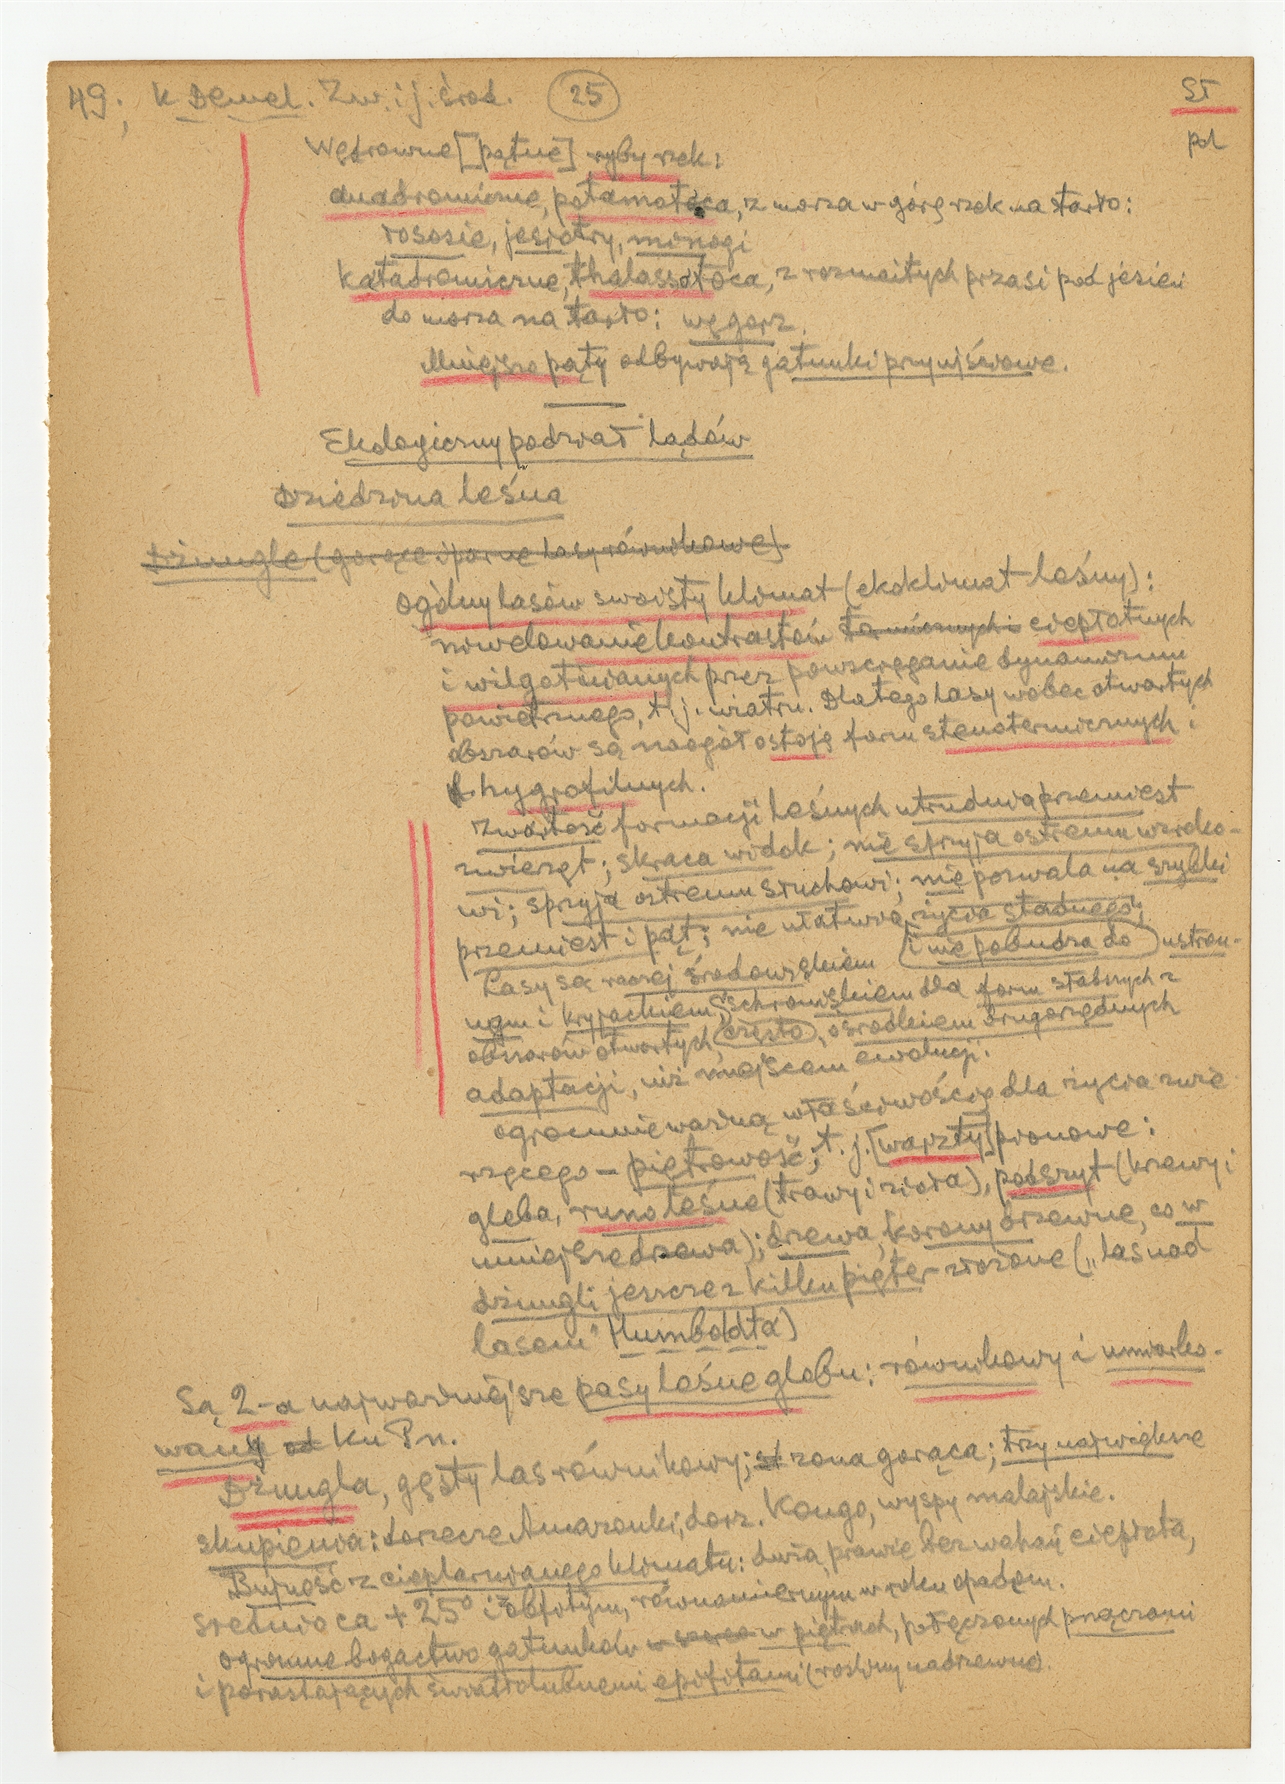 49; K Demel. Zw. i j. środ. 25 ST
pol
Wędrowne [pątne] ryby rzek:
anadromiczne, potamotoca, z morza w górę rzek na tarło:
łososie, jesiotry, minogi
katadromiczne, thalassotoca, z rozmaitych przasi pod jesień
do morza na tarło: węgorz.
Mniejsze pąty odbywają gatunki przyujściowe.
Ekologiczny podział lądów
Dziedzina leśna
Dżungle (gorące i parne lasy równikowe)
ogólny lasów swoisty klimat (ekoklimat leśny):
niwelowanie kontrastów termicznych i ciepłotnych
i wilgotniowych przez powściąganie dynamizmu
powietrznego, t.j. wiatru. Dlatego lasy wobec otwartych
obszarów są naogół ostoją form stenotermicznych i
hygrofilnych.
Zwartość formacji leśnych utrudnia przemiest
zwierząt; skraca widok; nie sprzyja ostremu wzroko-
wi; sprzyja ostremu słuchowi; nie pozwala na szybki
przemiest i pąt; nie ułatwia życia stadnego;
i nie pobudza do
Lasy są raczej środowiskiem ustron-
nym i kryjackiem, schroniskiem dla form słabszych z
obszarów otwartych, często, ośrodkiem drugorzędnych
adaptacji, niż miejscem ewolucji.
ogromnie ważną właściwością dla życia zwie
rzęcego – piętrowość, t.j. [warzty] pionowe:
gleba, runo leśne (trawy i zioła), podszyt (krzewy i
mniejsze drzewa); drzewa, korony drzewne, co w
dżungli jeszcze z kilku pięter złożone („las nad
lasem" Humboldta)
Są 2-a najważniejsze pasy leśne globu: równikowy i umiarko-
wany od ku Pn.
Dżungla, gęsty las równikowy; st zona gorąca; trzy największe
skupienia: dorzecze Amazonki, dorz. Kongo, wyspy malajskie.
Bujność z cieplarnianego klimatu: dużą, prawie bez wahań ciepłotą,
średnio ca +25° i obfitym, równomiernym w roku opadem.
ogromne bogactwo gatunków w piętrach, połączonych pnączami
i porastających światłolubnemi epifitami (rośliny nadrzewne).